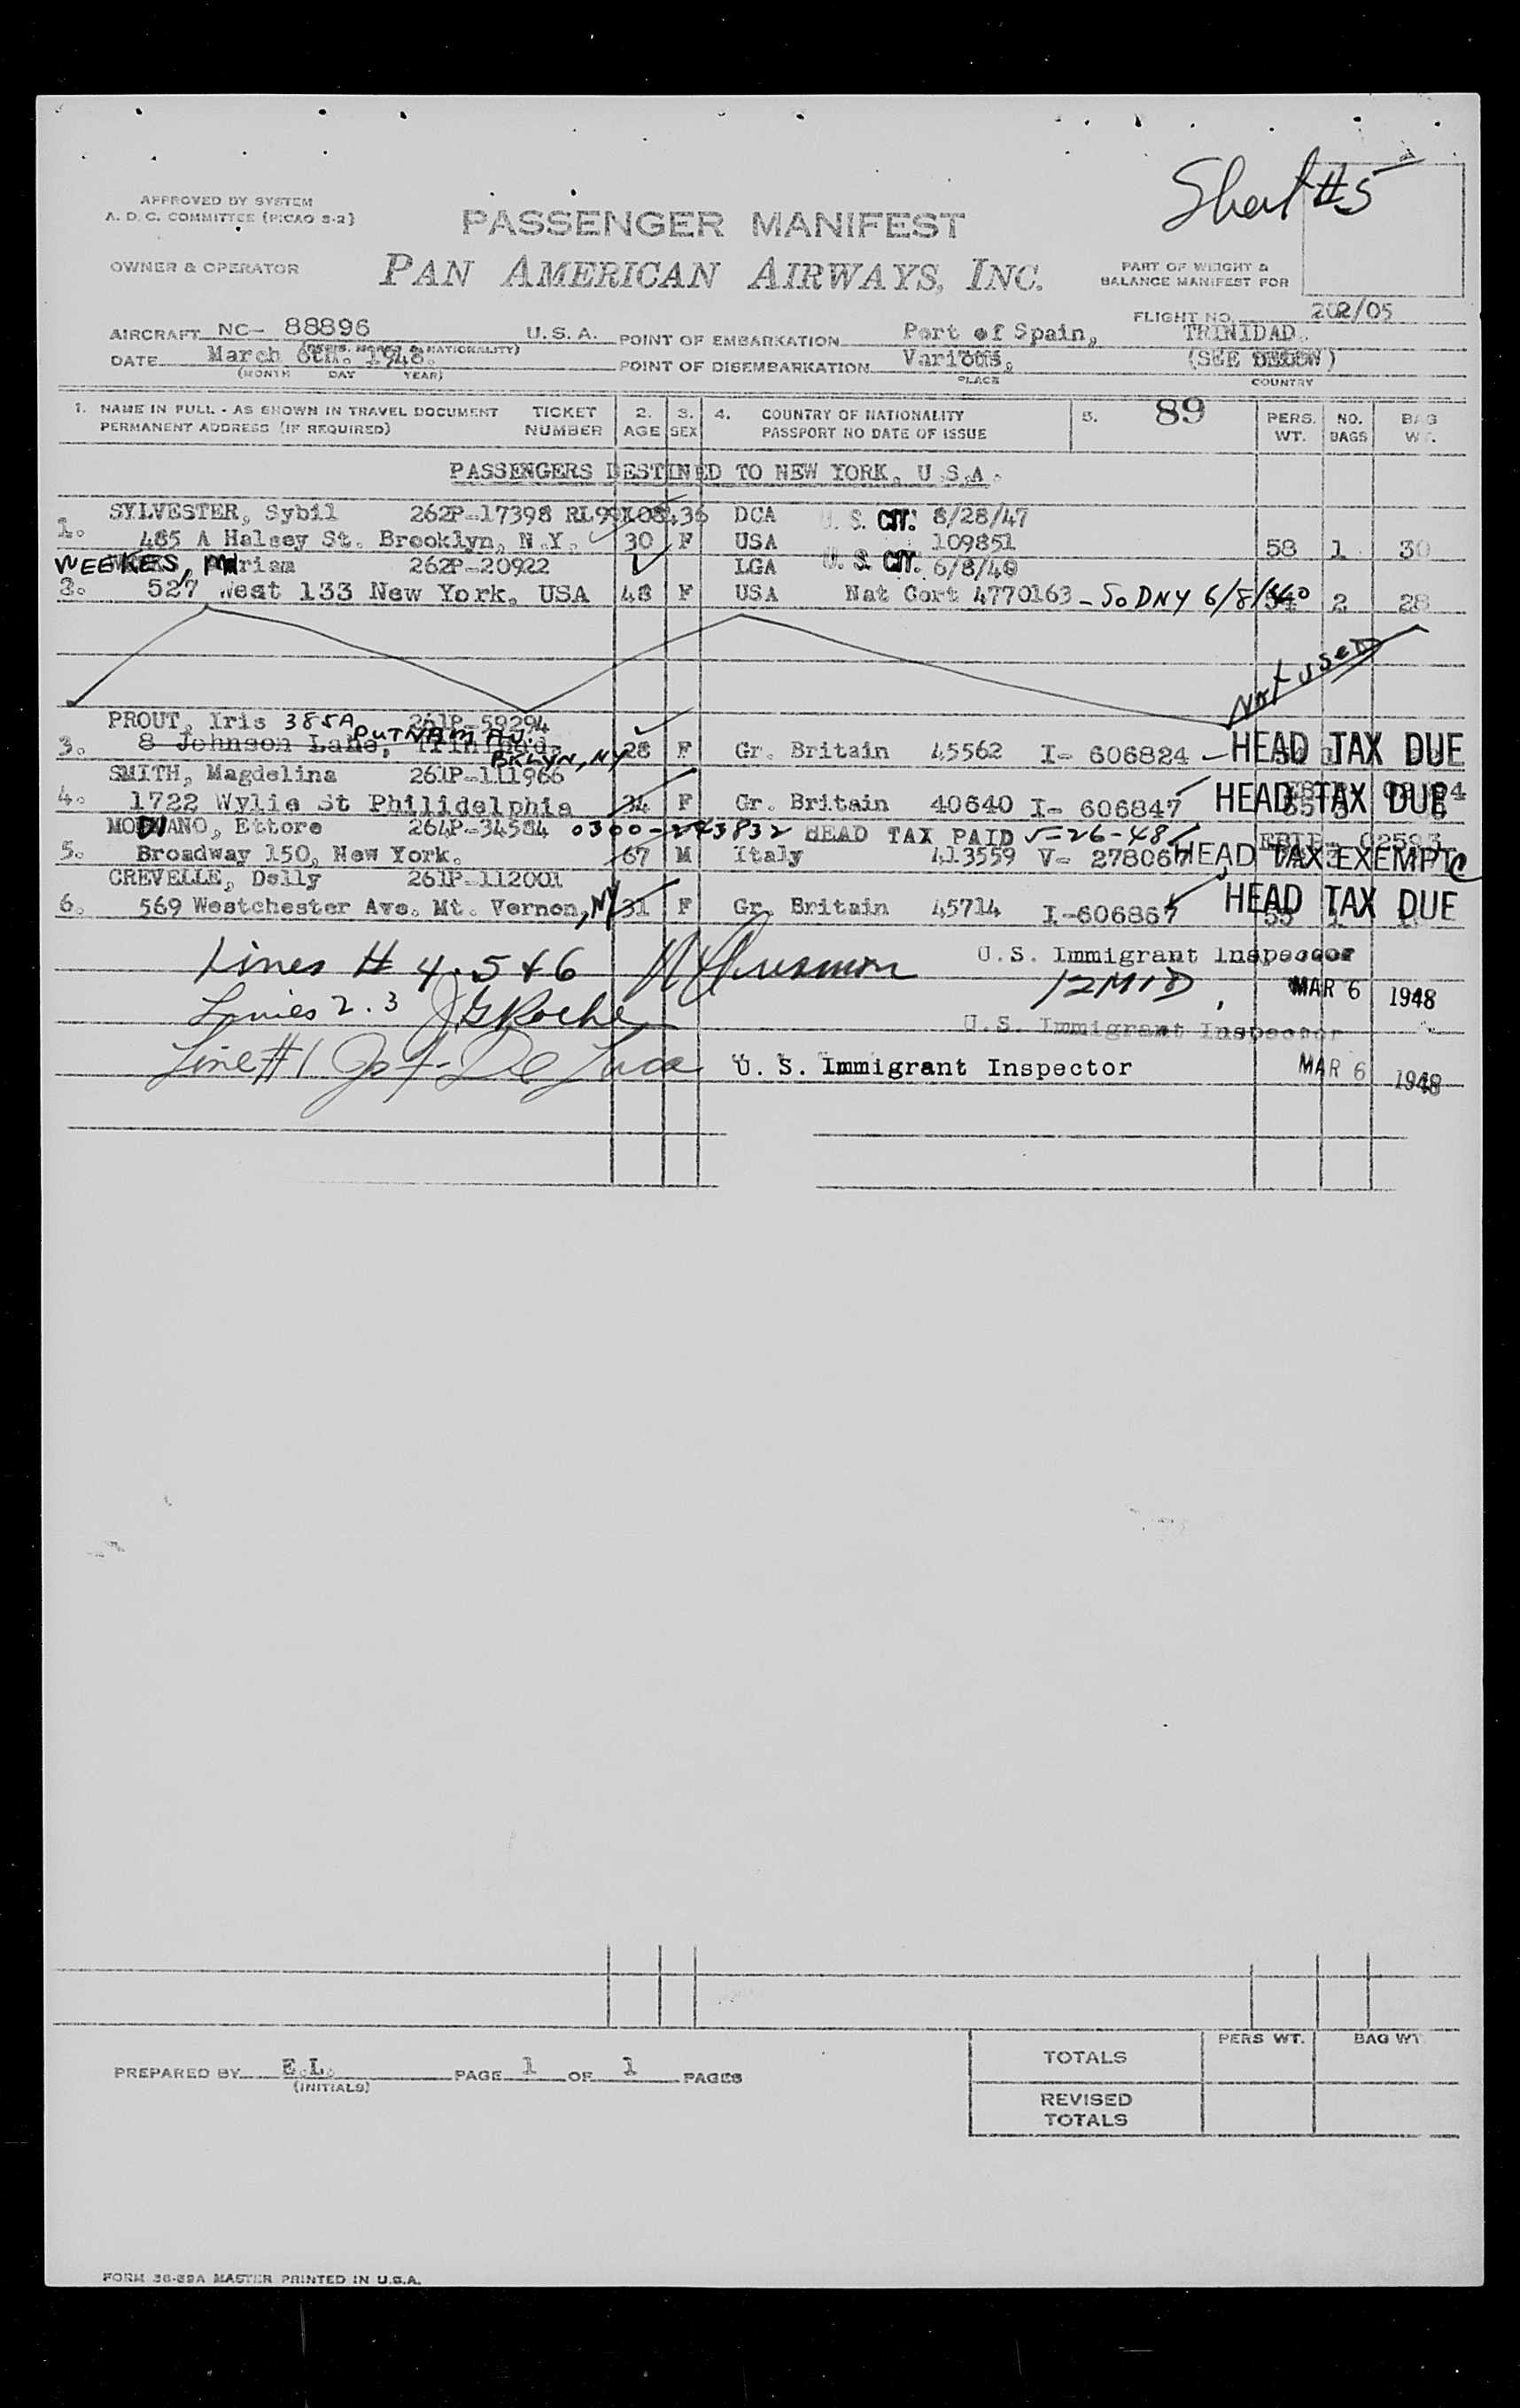 Sheet #5
APPROVED BY SYSTEM
A. D. C. COMMITTEE (PICAO S-2)
PASSENGER MANIFEST
OWNER & OPERATOR
PAN AMERICAN AIRWAYS, INC.
PART OF WEIGHT &
BALANCE MANIFEST FOR
FLIGHT NO. 202/05
AIRCRAFT NC- 88896 U.S.A. POINT OF EMBARKATION Port of Spain, TRINIDAD.
(REGIS. MARKS & NATIONALITY)
DATE March 6th. 1948. POINT OF DISEMBARKATION Various, (SEE BELOW)
(MONTH DAY YEAR) PLACE COUNTRY
1. NAME IN FULL - AS SHOWN IN TRAVEL DOCUMENT TICKET 2. 3. 4. COUNTRY OF NATIONALITY 5. 89 PERS. NO. BAG
PERMANENT ADDRESS (IF REQUIRED) NUMBER AGE SEX PASSPORT NO DATE OF ISSUE WT. BAGS WT.
PASSENGERS DESTINED TO NEW YORK, U.S.A.
SYLVESTER, Sybil 262P-17398 DCA U. S. CIT. 8/28/47
1. 485 A Halsey St. Brooklyn, N.Y. 30 F USA 109851 58 1 30
WEEKES, Miriam 262P-20922 LGA U. S. CIT. 6/8/40
2. 527 West 133 New York, USA 48 F USA Nat Cert 4770163 - So DNY 6/8/40 2 28
Not used
PROUT, Iris 385A 261P-59294
PUTNAM AV.
3. 8 Johnson Lane, Trinidad. BKLYN, NY 28 F Gr. Britain 45562 I- 606824 HEAD TAX DUE
SMITH, Magdelina 261P-111966
4. 1722 Wylie St Philidelphia 34 F Gr. Britain 40640 I- 606847 HEAD TAX DUE
MODIANO, Ettore 264P-34584 0300-243832 HEAD TAX PAID 5-26-48
5. Broadway 150, New York. 67 M Italy 413559 V- 278067 HEAD TAX EXEMPT
CREVELLE, Dolly 261P-112001
6. 569 Westchester Ave. Mt. Vernon, NY 31 F Gr. Britain 45714 I-606867 HEAD TAX DUE
Lines # 4.5 & 6 U.S. Immigrant Inspector
12 MID MAR 6 1948
Lines 2.3 J G Roche
U.S. Immigrant Inspector
Line #1 Jos F. De Luca U. S. Immigrant Inspector MAR 6 1948
PERS WT. BAG WT
TOTALS
PREPARED BY E.L. PAGE 1 OF 1 PAGES
(INITIALS)
REVISED
TOTALS
FORM 36-69A MASTER PRINTED IN U.S.A.